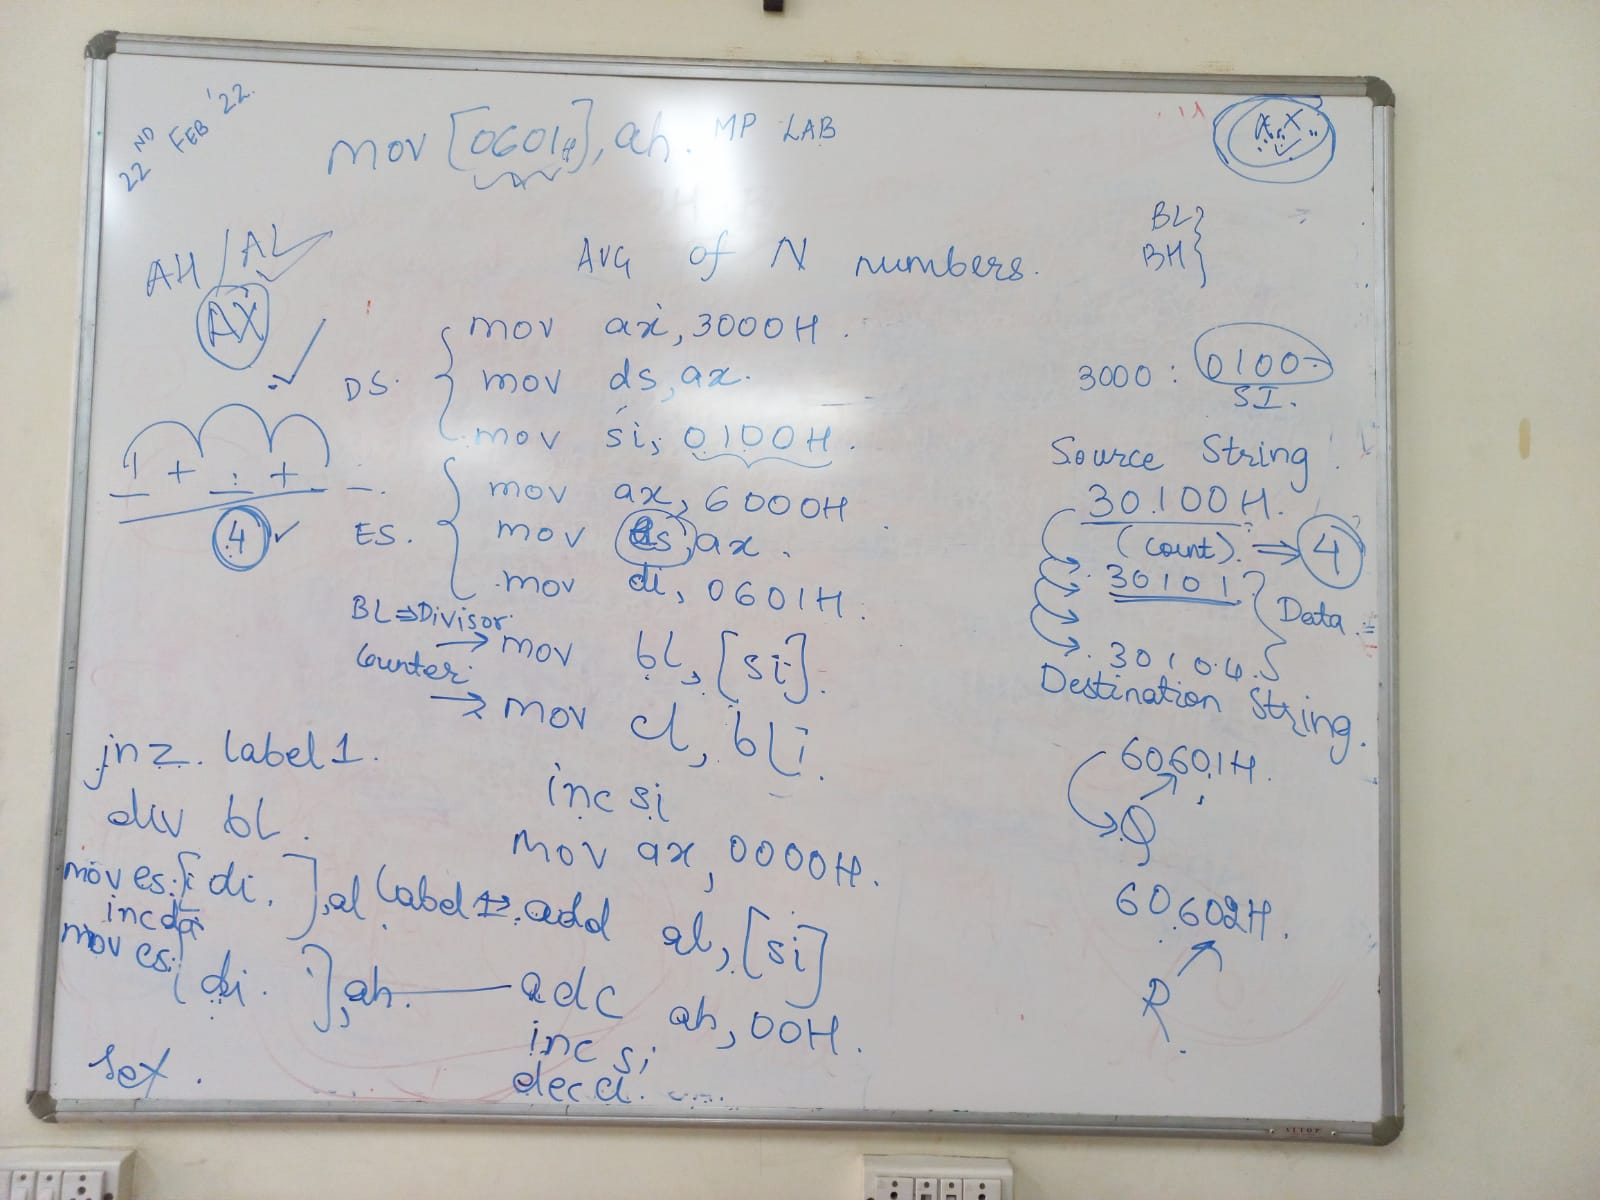 22ND FEB '22.
mov [0601H], ah. MP LAB
AX
AH / AL
AX
BL
BH
AVG of N numbers.
mov ax, 3000H.
DS. mov ds, ax.
mov si, 0100H.
ES. mov ax, 6000H
mov es, ax.
mov di, 0601H.
BL⇒Divisor
→ mov bl, [si].
Counter
→ mov cl, bl
inc si
mov ax, 0000H.
Label 1: add al, [si]
adc ah, 00H.
inc si
dec cl.
jnz label 1.
div bl.
mov es:[di.], al
inc di
mov es:[di.], ah.
1 + . +
4
3000 : 0100
SI.
Source String
30100H.
(Count). ⇒ 4
30101
Data
30104.
Destination String.
60601H.
Q
60602H.
R